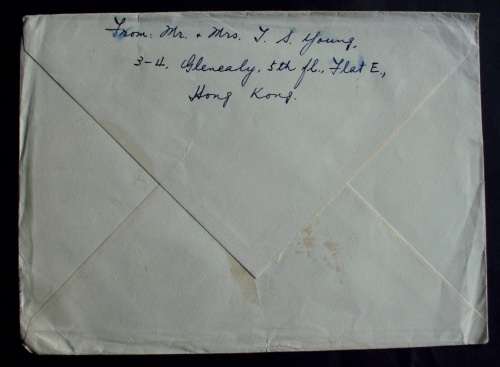 From: Mr. & Mrs. T. S. Young,
3-4, Glenealy, 5th fl., Flat E.,
Hong Kong.